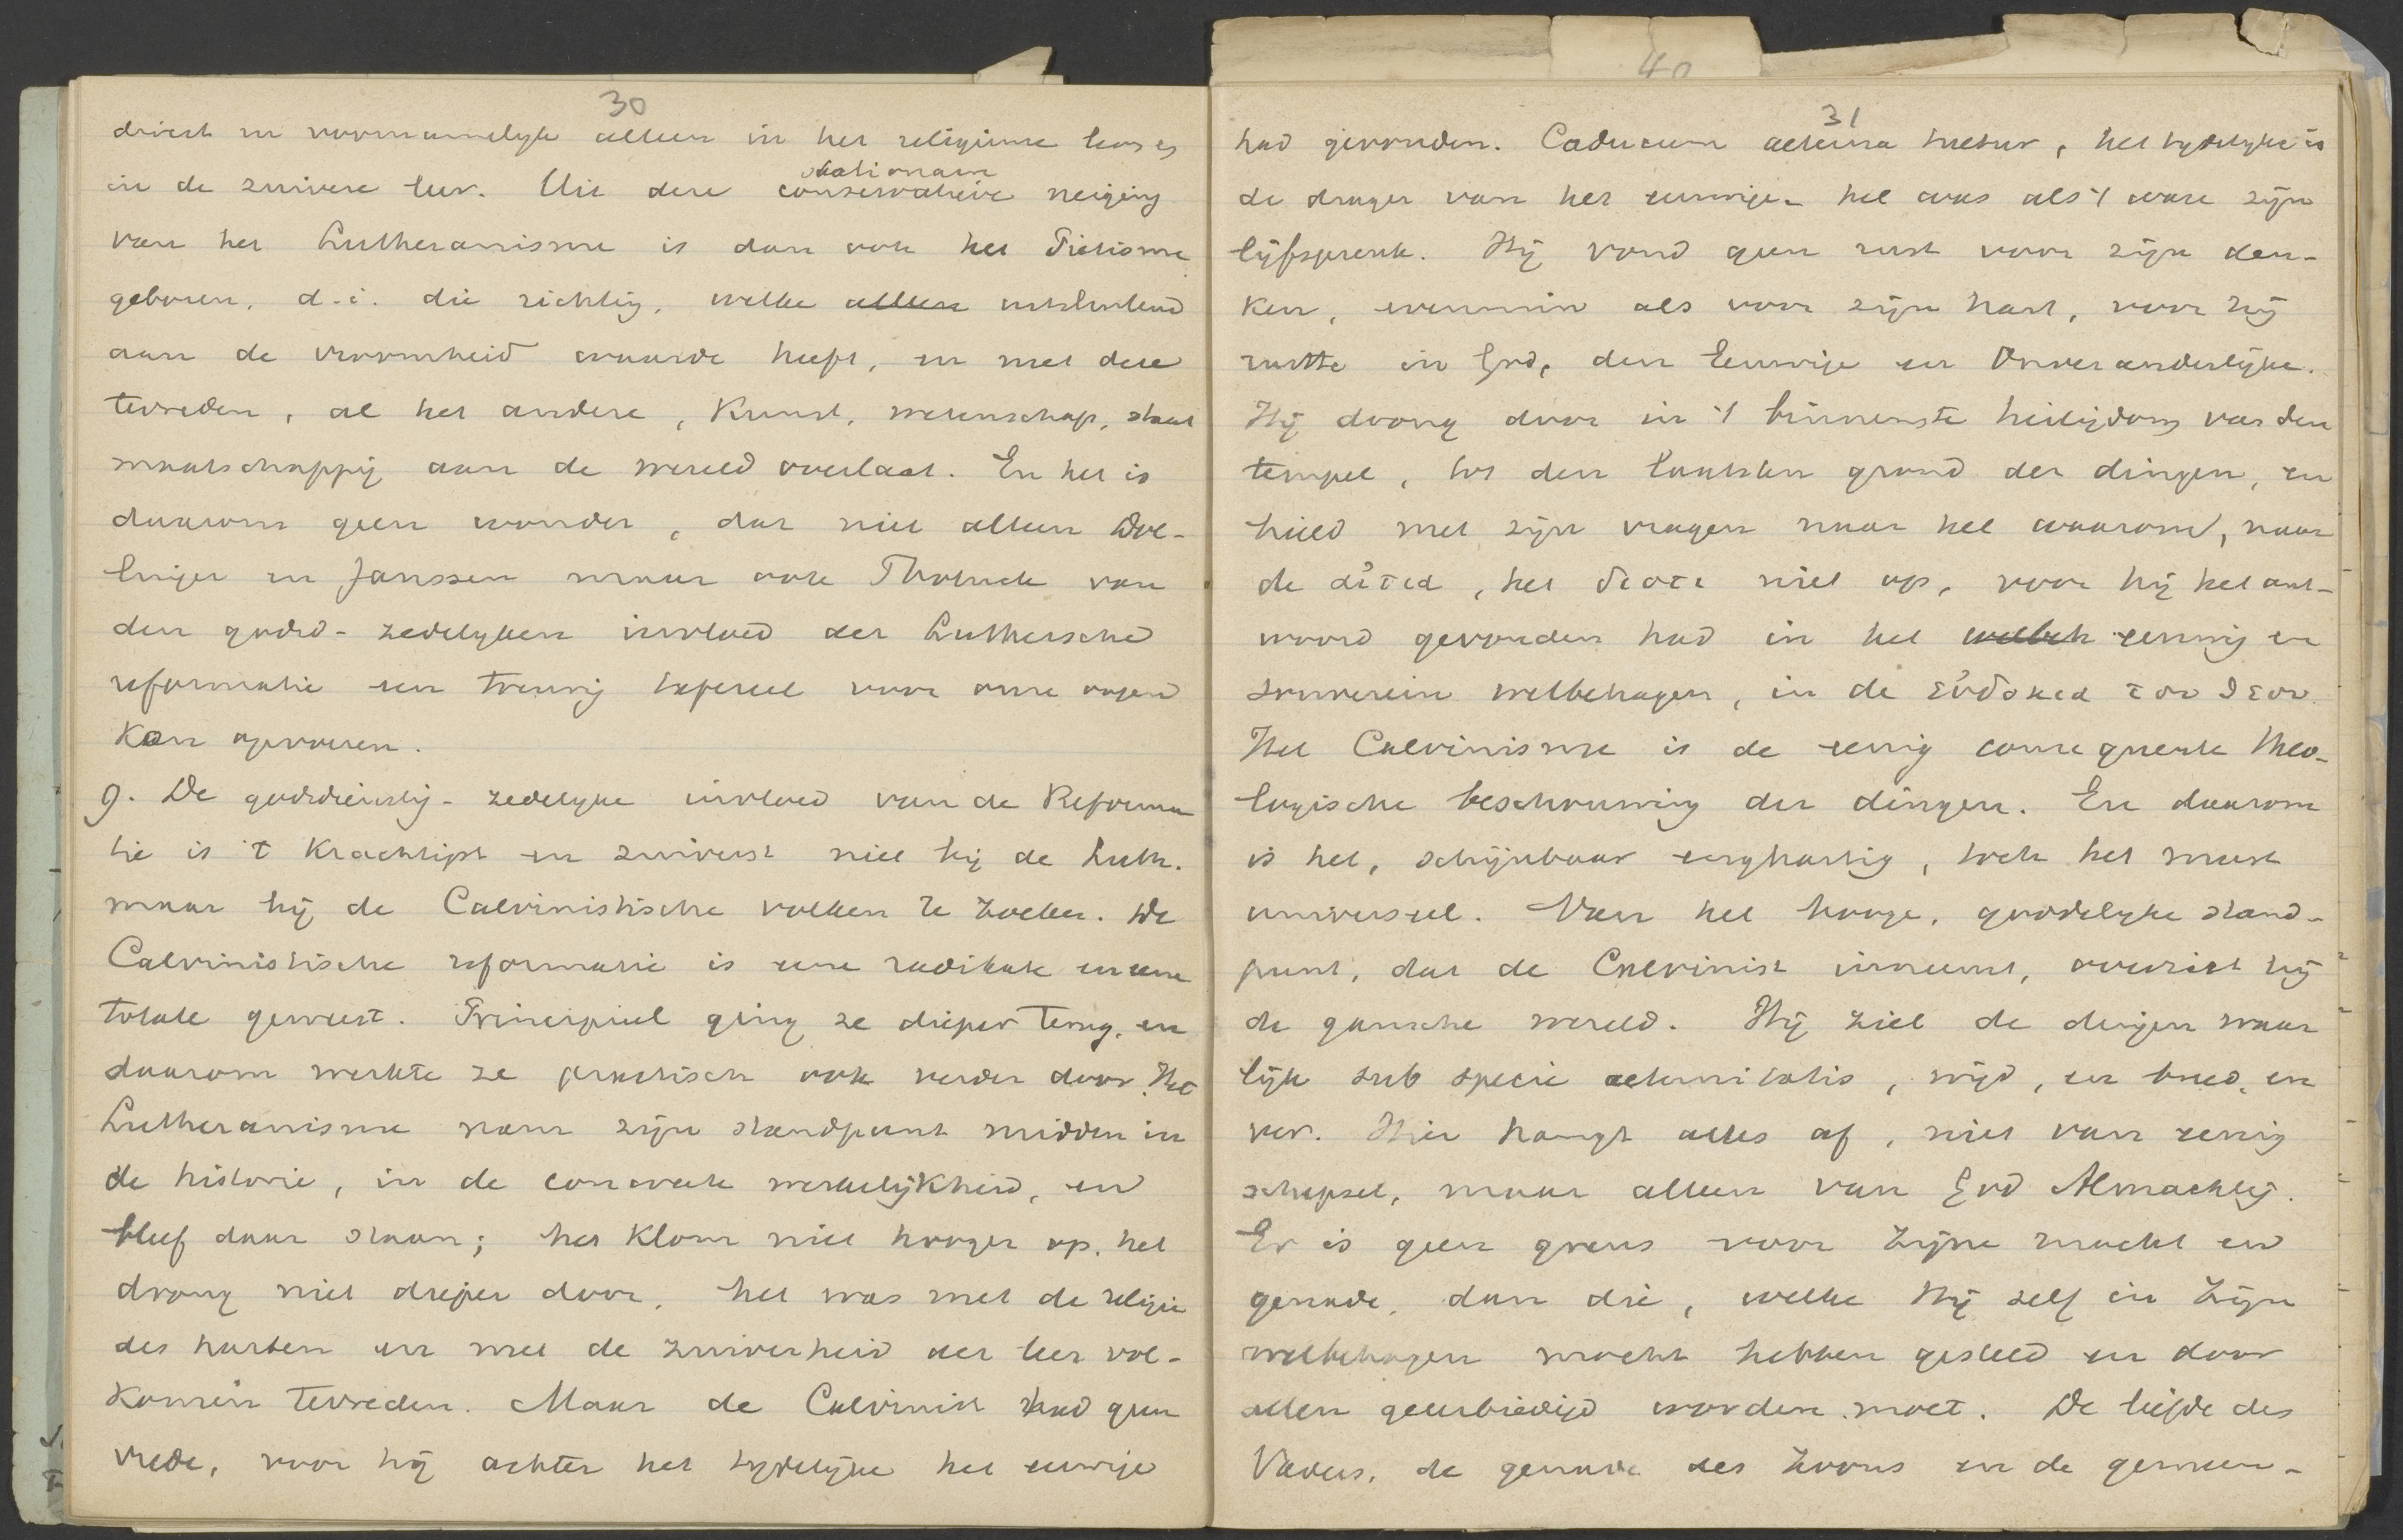 30
direct en voornamelyk alleen in het religieuse leven en
stationaire
in de zuivere leer. Uit deze conservatieve neiging
van het Lutheranisme is dan ook het Pietisme
geboren, d.i. die richting, welke alleen uitsluitend
aan de vroomheid waarde heeft, en met deze
tevreden, al het andere, Kunst, wetenschap, staat
maatschappij aan de wereld overlaat. En het is
daarom geen wonder, dat niet alleen Döl-
linger en Janssen maar ook Tholuck van
den godsd-zedelyken invloed der Luthersche
reformatie een treurig tafereel voor onze oogen
kon opvoeren.
g. De godsdienstig-zedelyke invloed van de Reforma
tie is 't krachtigst en zuiverst niet bij de Luth.
maar bij de Calvinistische volken te zoeken. De
Calvinistische reformatie is eene radikale en eene
totale geweest. Principieel ging ze dieper terug, en
daarom werkte ze practisch ook verder door. Het
Lutheranisme nam zijn standpunt midden in
de historie, in de concrete werkelijkheid, en
bleef daar staan; het klom niet hooger op, het
drong niet dieper door, het was met de religie
des harten en met de zuiverheid der leer vol-
komen tevreden. Maar de Calvinist had geen
vrede, voor hij achter het tydelyke het eeuwige
40
31
had gevonden. Caducum aeterna tuetur, het tydelyke is
de drager van het eeuwige - het was als 't ware zijn
lijfspreuk. Hij vond geen rust voor zijn den-
ken, evenmin als voor zijn hart, voor hij
rustte in God, den Eeuwige en Onveranderlijke.
Hij drong door in 't binnenste heiligdom van den
tempel, tot den laatsten grond der dingen, en
hield met zijn vragen naar het waarom, naar
de αἰτια, het διοτι niet op, voor hij het ant-
woord gevonden had in het welbeh eeuwig en
souverein welbehagen, in de εὐδοκια του θεου.
Het Calvinisme is de eenig consequente theo-
logische beschouwing der dingen. En daarom
is het, schijnbaar enghartig, toch het meest
universeel. Van het hooge, goddelyke stand-
punt, dat de Calvinist inneemt, overziet hij
de gansche wereld. Hij ziet de dingen waar
lijk sub specie aeternitatis, wijd, en breed, en
ver. Hier hangt alles af, niet van eenig
schepsel, maar alleen van God Almachtig.
Er is geen grens voor Zijne macht en
genade, dan die, welke Hij zelf in Zijn
welbehagen mocht hebben gesteld en door
allen geëerbiedigd worden moet. De liefde des
Vaders, de genade des Zoons en de gemeen-